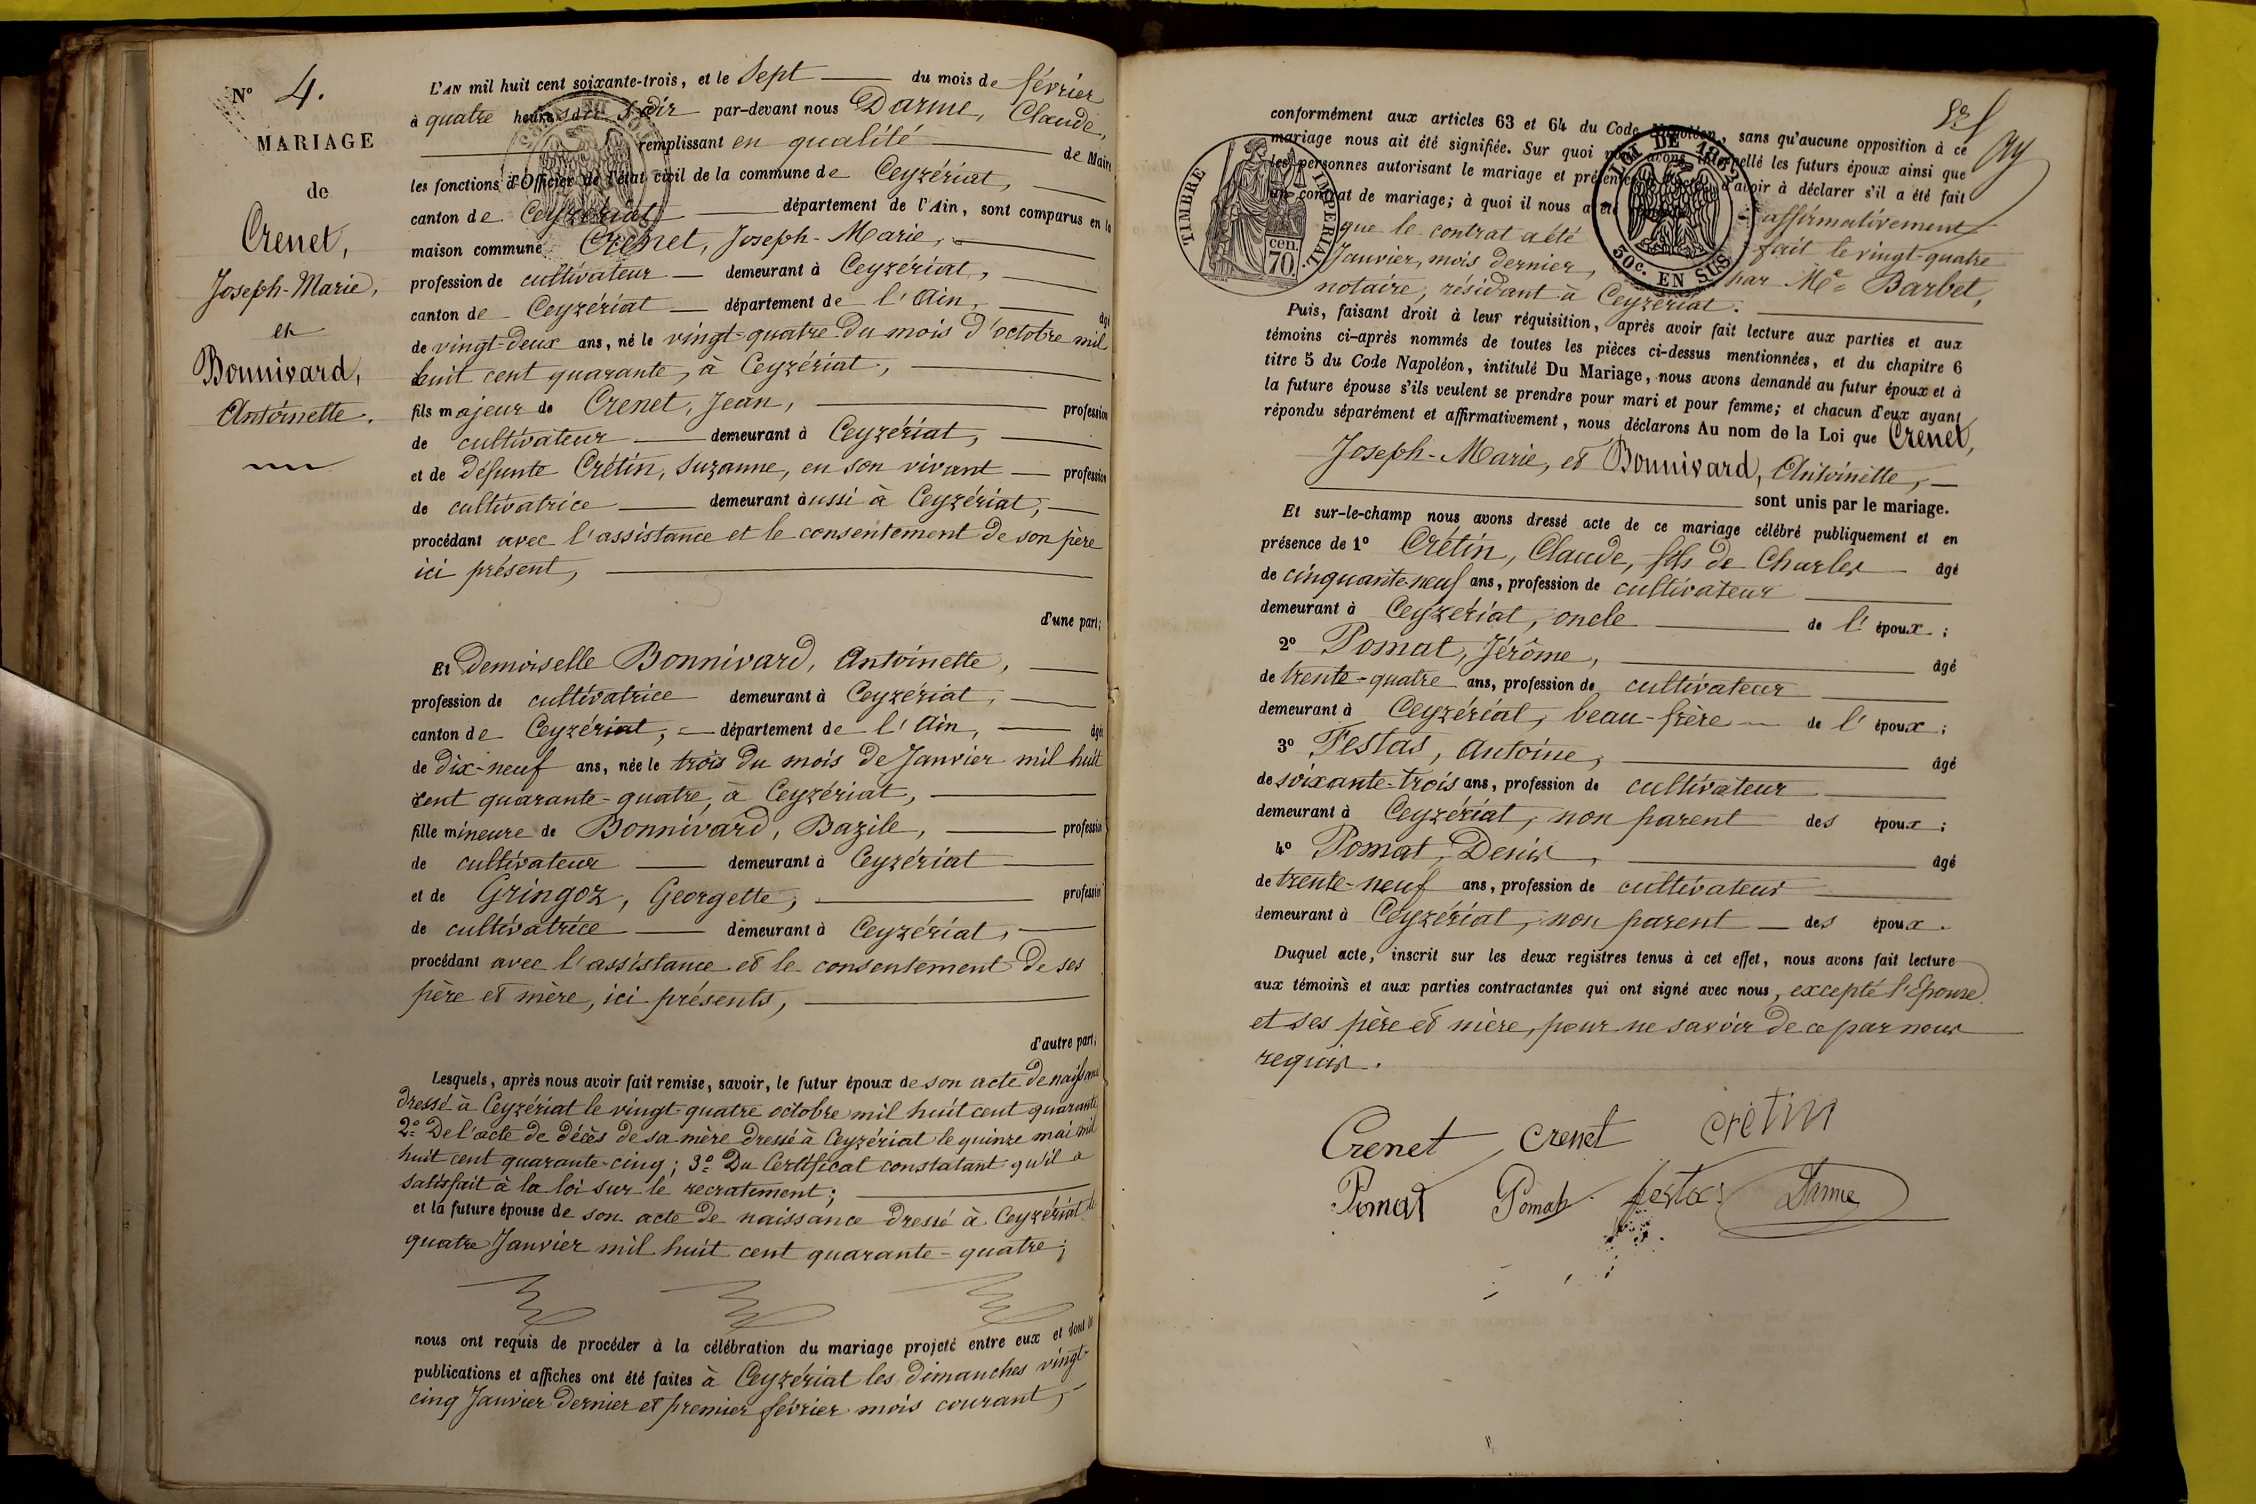 Nº 4.
MARIAGE
de
Crenet,
Joseph-Marie,
et
Bonnivard,
Antoinette.
L'AN mil huit cent soixante-trois, et le Sept du mois de février
à quatre heures du Soir par-devant nous Darme, Claude,
remplissant en qualité de Maire
les fonctions d'Officier de l'état civil de la commune de Ceyzériat,
canton de Ceyzériat département de l'Ain, sont comparus en la
maison commune Crenet, Joseph-Marie,
profession de cultivateur demeurant à Ceyzériat,
canton de Ceyzériat département de l'Ain, âgé
de vingt-deux ans, né le vingt-quatre du mois d'octobre mil
huit cent quarante, à Ceyzériat,
fils majeur de Crenet, Jean, profession
de cultivateur demeurant à Ceyzériat,
et de défunte Crétin, Suzanne, en son vivant profession
de cultivatrice demeurant aussi à Ceyzériat,
procédant avec l'assistance et le consentement de son père
ici présent,
d'une part;
Et Demoiselle Bonnivard, Antoinette,
profession de cultivatrice demeurant à Ceyzériat,
canton de Ceyzériat, département de l'Ain, âgée
de dix-neuf ans, née le trois du mois de Janvier mil huit
cent quarante-quatre, à Ceyzériat,
fille mineure de Bonnivard, Bazile, profession
de cultivateur demeurant à Ceyzériat
et de Gringoz, Georgette, profession
de cultivatrice demeurant à Ceyzériat,
procédant avec l'assistance et le consentement de ses
père et mère, ici présents,
d'autre part;
Lesquels, après nous avoir fait remise, savoir, le futur époux de son acte de naissance
dressé à Ceyzériat le vingt-quatre octobre mil huit cent quarante,
2º De l'acte de décès de sa mère dressé à Ceyzériat le quinze mai mil
huit cent quarante-cinq; 3º Du Certificat constatant qu'il a
satisfait à la loi sur le recrutement;
et la future épouse de son acte de naissance dressé à Ceyzériat le
quatre Janvier mil huit cent quarante-quatre;
nous ont requis de procéder à la célébration du mariage projeté entre eux et dont les
publications et affiches ont été faites à Ceyzériat les dimanches vingt-
cinq Janvier dernier et premier février mois courant,
conformément aux articles 63 et 64 du Code Napoléon, sans qu'aucune opposition à ce
mariage nous ait été signifiée. Sur quoi nous avons interpellé les futurs époux ainsi que
les personnes autorisant le mariage et présentes d'avoir à déclarer s'il a été fait
un contrat de mariage; à quoi il nous a été affirmativement
que le contrat a été fait le vingt-quatre
Janvier, mois dernier, par Me Barbet,
notaire, résidant à Ceyzériat.
TIMBRE IMPÉRIAL
cen. 70
LOI DE 1862
50c. EN SUS
Puis, faisant droit à leur réquisition, après avoir fait lecture aux parties et aux
témoins ci-après nommés de toutes les pièces ci-dessus mentionnées, et du chapitre 6
titre 5 du Code Napoléon, intitulé Du Mariage, nous avons demandé au futur époux et à
la future épouse s'ils veulent se prendre pour mari et pour femme; et chacun d'eux ayant
répondu séparément et affirmativement, nous déclarons Au nom de la Loi que Crenet,
Joseph-Marie, et Bonnivard, Antoinette,
sont unis par le mariage.
Et sur-le-champ nous avons dressé acte de ce mariage célébré publiquement et en
présence de 1º Crétin, Claude, fils de Charles âgé
de cinquante-neuf ans, profession de cultivateur
demeurant à Ceyzériat, oncle de l'époux;
2º Pomat, Jérôme, âgé
de trente-quatre ans, profession de cultivateur
demeurant à Ceyzériat, beau-frère de l'époux;
3º Festas, Antoine, âgé
de soixante-trois ans, profession de cultivateur
demeurant à Ceyzériat, non parent des époux;
4º Pomat, Denis, âgé
de trente-neuf ans, profession de cultivateur
demeurant à Ceyzériat, non parent des époux.
Duquel acte, inscrit sur les deux registres tenus à cet effet, nous avons fait lecture
aux témoins et aux parties contractantes qui ont signé avec nous, excepté l'Epouse
et ses père et mère, pour ne savoir de ce par nous
requis.
Crenet crenet crétin
Pomat Pomat festas Darme